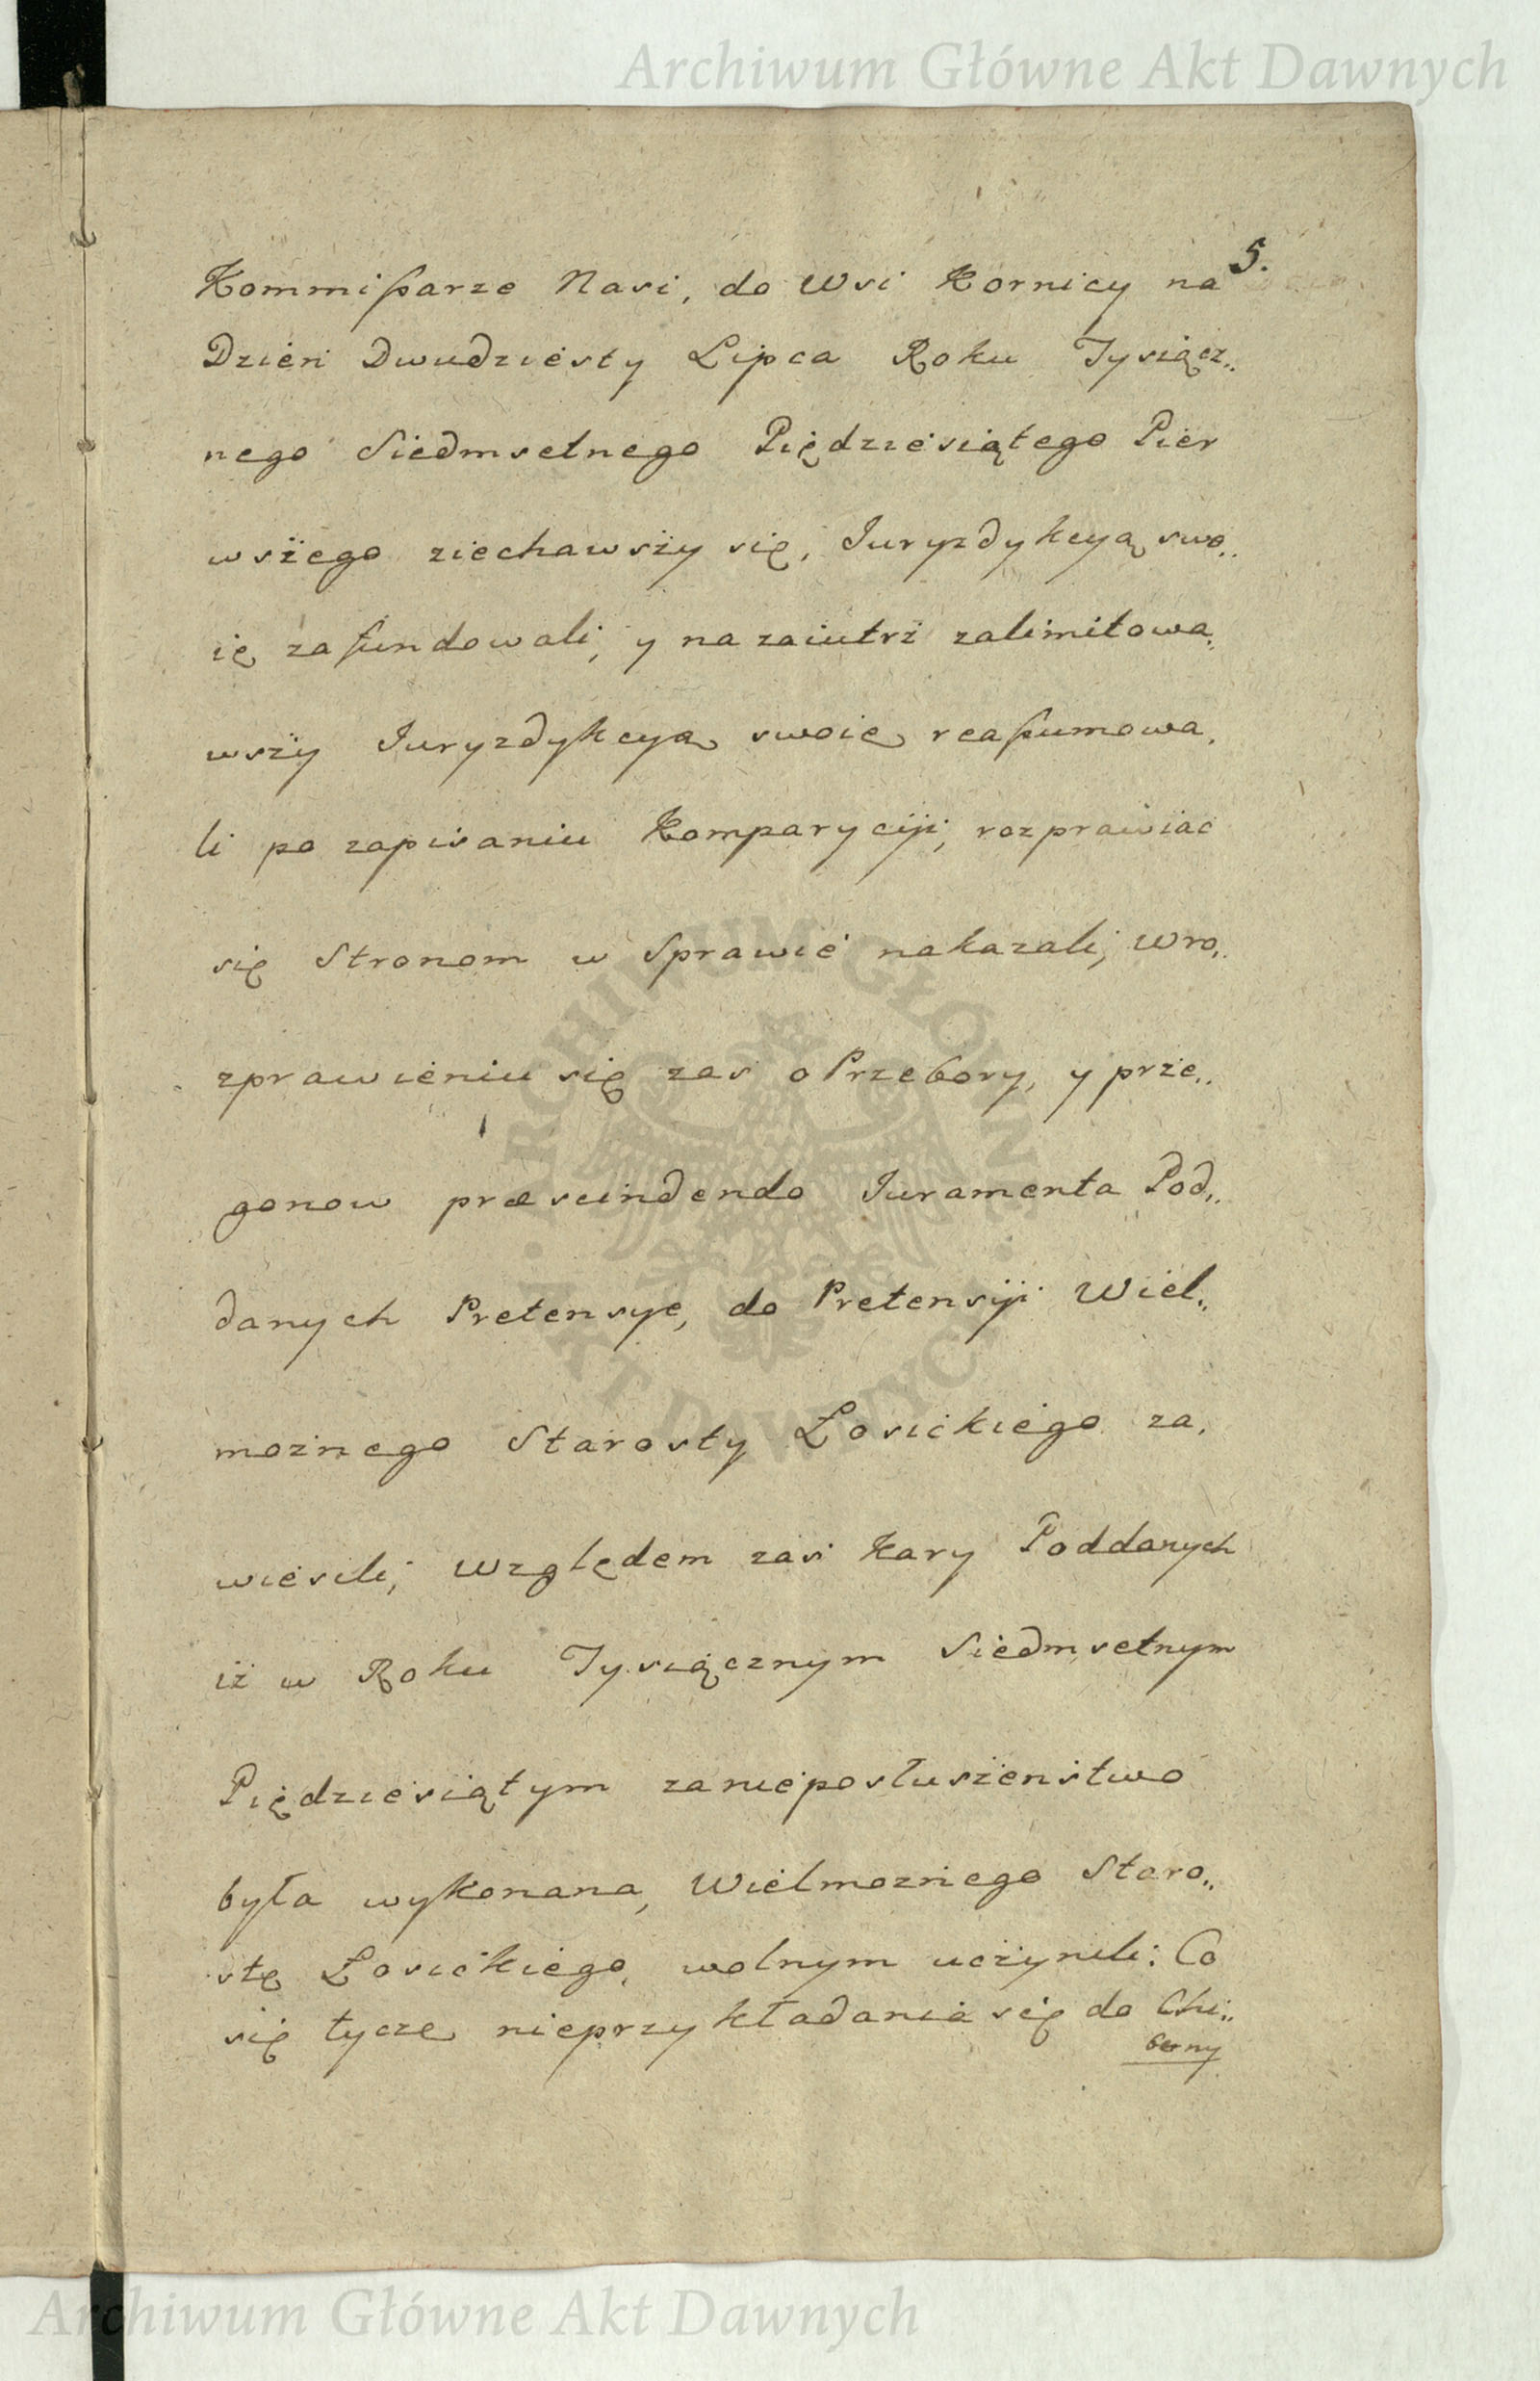 Archiwum Główne Akt Dawnych
5.
Kommißarze Nasi, do Wsi Kornicy na
Dzień Dwudziesty Lipca Roku Tysiącz„
nego Siedmsetnego Pięдziesiątego Pier
wszego ziechawszy się, Juryzdykcyą swo„
ię zafundowali, y nazaiutrz zalimitowa„
wszy Juryzdykcyą swoię reaßumowa„
li po zapisaniu Komparycÿi, rozprawiać
się Stronom w Sprawie nakazali, wro„
zprawieniu się zaś o Przebory, y prze„
gonow præscindendo Juramenta Pod„
danych Pretensye, do Pretensÿi Wiel„
możnego Starosty Łosickiego za„
wiesili, względem zaś Kary Poddanych
iż w Roku Tysiącznym Siedmsetnym
Pięдziesiątym za nieposłuszeństwo
była wykonana, Wielmożnego Staro„
stę Łosickiego, wolnym uczynili: Co
się tycze nieprzykładania się do Chi„
berny
ARCHIWUM GŁÓWNE · AKT DAWNYCH ·
Archiwum Główne Akt Dawnych